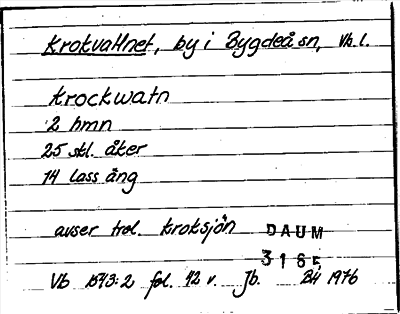 Krokvattnet, by i Bygdeå sn, Vb l.
Krockwatn
2 hmn
25 skl. åker
14 lass äng
avser trol. Kroksjön DAUM
3165
Vb 1543:2 fol. 42 v. Jb. BH 1976